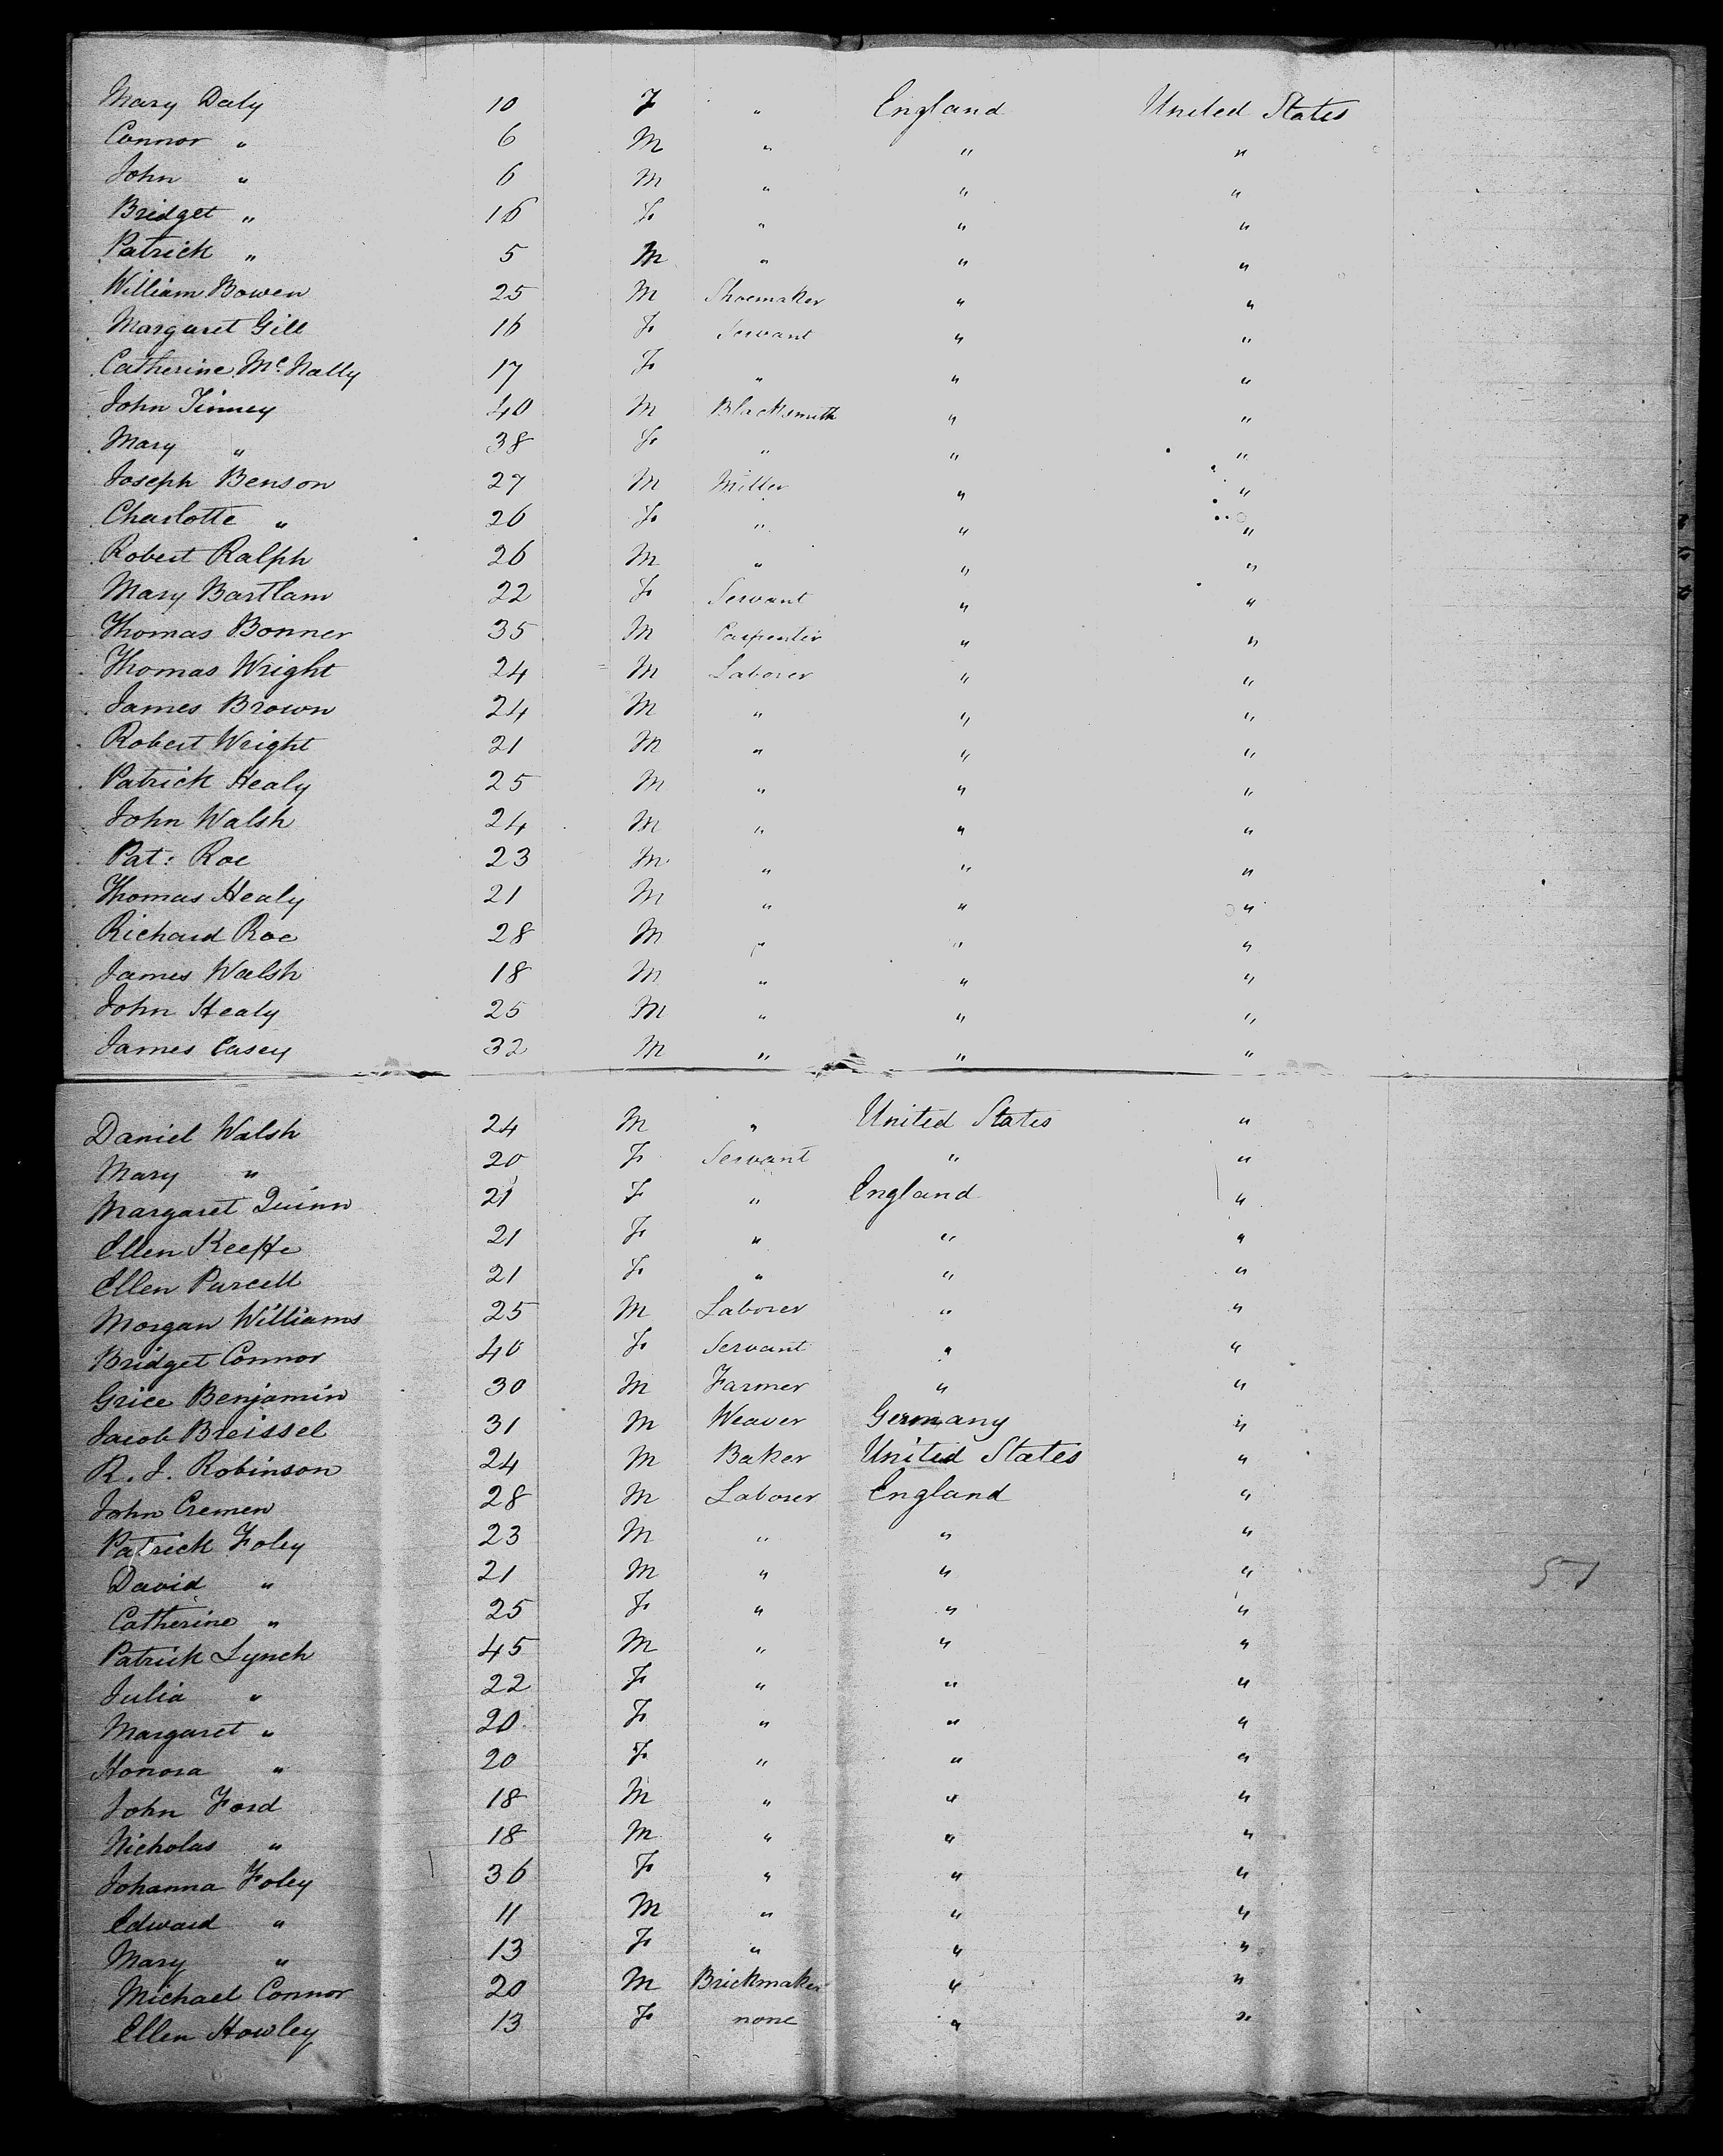 Mary Daly 10 F " England United States
Connor " 6 M " " "
John " 6 M " " "
Bridget " 16 F " " "
Patrick " 5 M " " "
William Bowen 25 M Shoemaker " "
Margaret Gill 16 F Servant " "
Catherine McNally 17 F " " "
John Tinney 40 M Blacksmith " "
Mary " 38 F " " "
Joseph Benson 27 M Miller " "
Charlotte " 26 F " " "
Robert Ralph 26 M " " "
Mary Bartlam 22 F Servant " "
Thomas Bonner 35 M Carpenter " "
Thomas Wright 24 M Laborer " "
James Brown 24 M " " "
Robert Wright 21 M " " "
Patrick Healy 25 M " " "
John Walsh 24 M " " "
Pat: Roe 23 M " " "
Thomas Healy 21 M " " "
Richard Roe 28 M " " "
James Walsh 18 M " " "
John Healy 25 M " " "
James Casey 32 M " " "
Daniel Walsh 24 M " United States "
Mary " 20 F Servant " "
Margaret Quinn 21 F " England "
Ellen Keeffe 21 F " " "
Ellen Purcell 21 F " " "
Morgan Williams 25 M Laborer " "
Bridget Connor 40 F Servant " "
Grice Benjamin 30 M Farmer " "
Jacob Breissel 31 M Weaver Germany "
R. J. Robinson 24 M Baker United States "
John Cremen 28 M Laborer England "
Patrick Foley 23 M " " "
David " 21 M " " "
Catherine " 25 F " " "
Patrick Lynch 45 M " " "
Julia " 22 F " " "
Margaret " 20 F " " "
Honora " 20 F " " "
John Ford 18 M " " "
Nicholas " 18 M " " "
Johanna Foley 36 F " " "
Edward " 11 M " " "
Mary " 13 F " " "
Michael Connor 20 M Brickmaker " "
Ellen Howley 13 F none " "
51